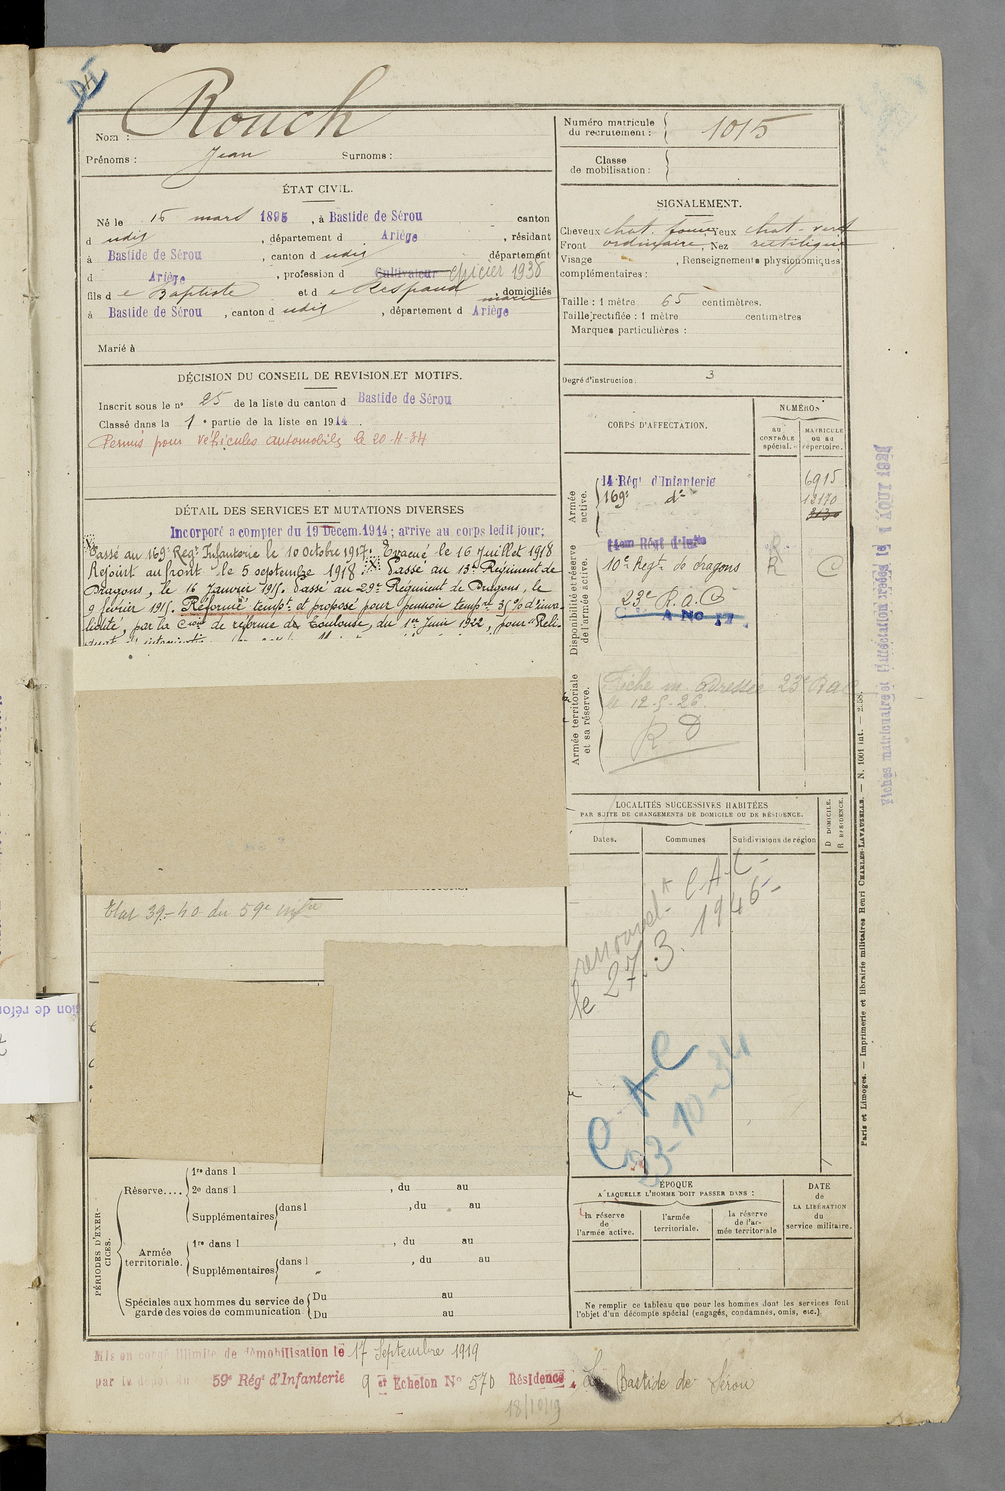 Rouch
Nom :
Prénoms : Jean Surnoms :
ÉTAT CIVIL.
Né le 15 mars 1895, à Bastide de Sérou canton
d udit, département d Ariège, résidant
à Bastide de Sérou, canton d udit département
d Ariège, profession d Cultivateur épicier 1938
fils de Baptiste et de Respaud, domiciliés
à Bastide de Sérou, canton d udit, département d Ariège
Marié à
DÉCISION DU CONSEIL DE REVISION ET MOTIFS.
Inscrit sous le n° 25 de la liste du canton d Bastide de Sérou
Classé dans la 1e partie de la liste en 1914
Permis pour véhicules automobiles le 20-4-34
DÉTAIL DES SERVICES ET MUTATIONS DIVERSES
Incorporé a compter du 19 Décem. 1914; arrive au corps ledit jour;
Passé au 169e Regt Infanterie le 10 octobre 1917. Evacué le 16 Juillet 1918
Rejoint au front le 5 septembre 1918. Passé au 13e Régiment de
Dragons, le 16 Janvier 191 . Passé au 29e Régiment de Dragons, le
9 février 191 . Réformé tempt et proposé pour pension tempre 35% d'inva-
lidité, par la Cion de réforme de Toulouse, du 1er Juin 1922, pour "Reli-
Etat 39-40 du 59e
PÉRIODES D'EXERCICES.
Réserve....
1re dans l
2e dans l , du au
Supplémentaires dans l , du au
Armée territoriale.
1re dans l , du au
Supplémentaires dans l , du au
Spéciales aux hommes du service de garde des voies de communication
Du au
Du au
Mis en congé illimité de démobilisation le 17 Septembre 1919
par le dépôt du 59e Régt d'Infanterie 9 et Echelon N° 570 Résidence La Bastide de Sérou
18/10/19
Numéro matricule
du recrutement : 1015
Classe
de mobilisation :
SIGNALEMENT.
Cheveux chat. foncé, Yeux chat-vert
Front ordinaire, Nez rectiligne
Visage , Renseignements physionomiques
complémentaires :
Taille : 1 mètre 65 centimètres.
Taille rectifiée : 1 mètre centimètres
Marques particulières :
Degré d'instruction : 3
CORPS D'AFFECTATION.
NUMÉROS
au
CONTRÔLE
spécial.
MATRICULE
ou au
répertoire.
Armée
active.
14 Régt d'Infanterie 6915
169e d° 12170
Disponibilité et réserve
de l'armée active.
14em Régt d'Infie R
10e Regt de dragons R C
23e R.A.C
A No 17
Armée territoriale
et sa réserve.
Fiche m. adressée 23e RAC
le 12-5-26.
R D
LOCALITÉS SUCCESSIVES HABITÉES
PAR SUITE DE CHANGEMENTS DE DOMICILE OU DE RÉSIDENCE.
Dates. Communes Subdivisions de région
D DOMICILE.
R RÉSIDENCE.
CAC
le 27.3.1946
C A C
23-10-34
ÉPOQUE
A LAQUELLE L'HOMME DOIT PASSER DANS :
la réserve
de
l'armée active.
l'armée
territoriale.
la réserve
de l'ar-
mée territoriale
DATE
de
LA LIBÉRATION
du
service militaire.
Ne remplir ce tableau que pour les hommes dont les services font
l'objet d'un décompte spécial (engagés, condamnés, omis, etc.).
Paris et Limoges. — Imprimerie et librairie militaires Henri CHARLES-LAVAUZELLE. — N. 1001 int. —